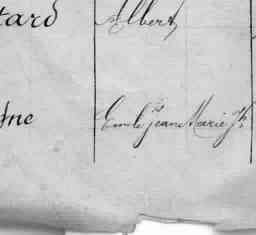 tard Albert,
ne Emile Jean Marie Jh